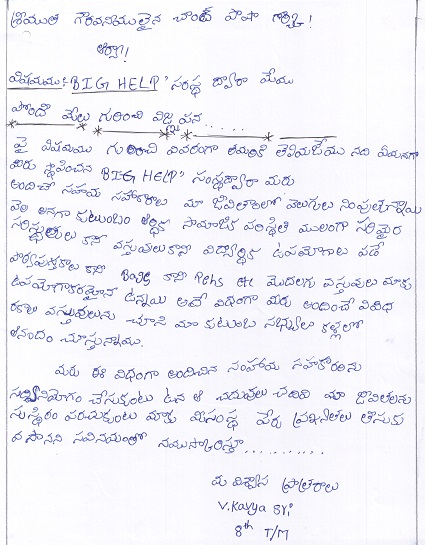 శ్రీమతి గౌరవనీయులైన చాంద్ పాషా గార్కి!
ఆర్యా!
విషయము :- BIG HELP" సంస్థ ద్వారా మేము
పొందే మేలు గురించి విజ్ఞపన......
పై విషయము గురించి వివరంగా తమరికి తెలియజేయు నది ఏమనగా
మీరు స్థాపించిన "BIG HELP" సంస్థద్వారా మీరు
అందించే సహాయ సహకారాలు మా జీవితాలలో వెలుగులు నింపుతున్నాయి
అనగా కుటుంబం ఆర్థిక సామాజిక పరిస్థితి మూలంగా సరియైన
కానీ వస్తువులుకాని విద్యార్థికి ఉపయోగాలు పడే
కాని Bags కాని Pens etc మొదలగు వస్తువులు మాకు
ఉపయోగాకరమైనా ఉన్నాయి అదే విధంగా మీరు అందించే వివిధ
రకాల వస్తువులను చూసి మా కుటుంబ సభ్యులు కళ్లలో
ఆనందం చూస్తున్నాము.
మీరు ఈ విధంగా అందించిన సహాయ సహకారాలను
సద్వినియోగం చేసుకుంటు చదువులు చదివి మా జీవితాలను
సుస్థిరం పరచుకుంటు మాకు మీసంస్థ పేరు ప్రఖ్యాతలు తీసుకు
వస్తానని సవినయంతో నమస్కారిస్తూ..........
మీ విశ్వాస పాత్రురాలు
V. Kavya Sri
8th T/M